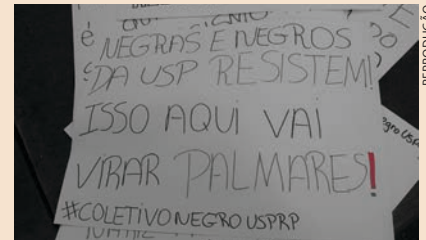 é
NEGRAS E NEGROS
DA USP RESISTEM!
ISSO AQUI VAI
VIRAR PALMARES!
#COLETIVO NEGRO USPRP
egro USP
REPRODUÇÃO